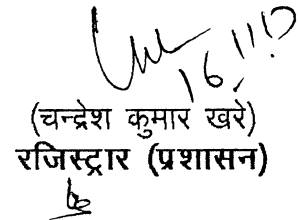 16.11.17
(चन्द्रेश कुमार खरे)
रजिस्ट्रार (प्रशासन)